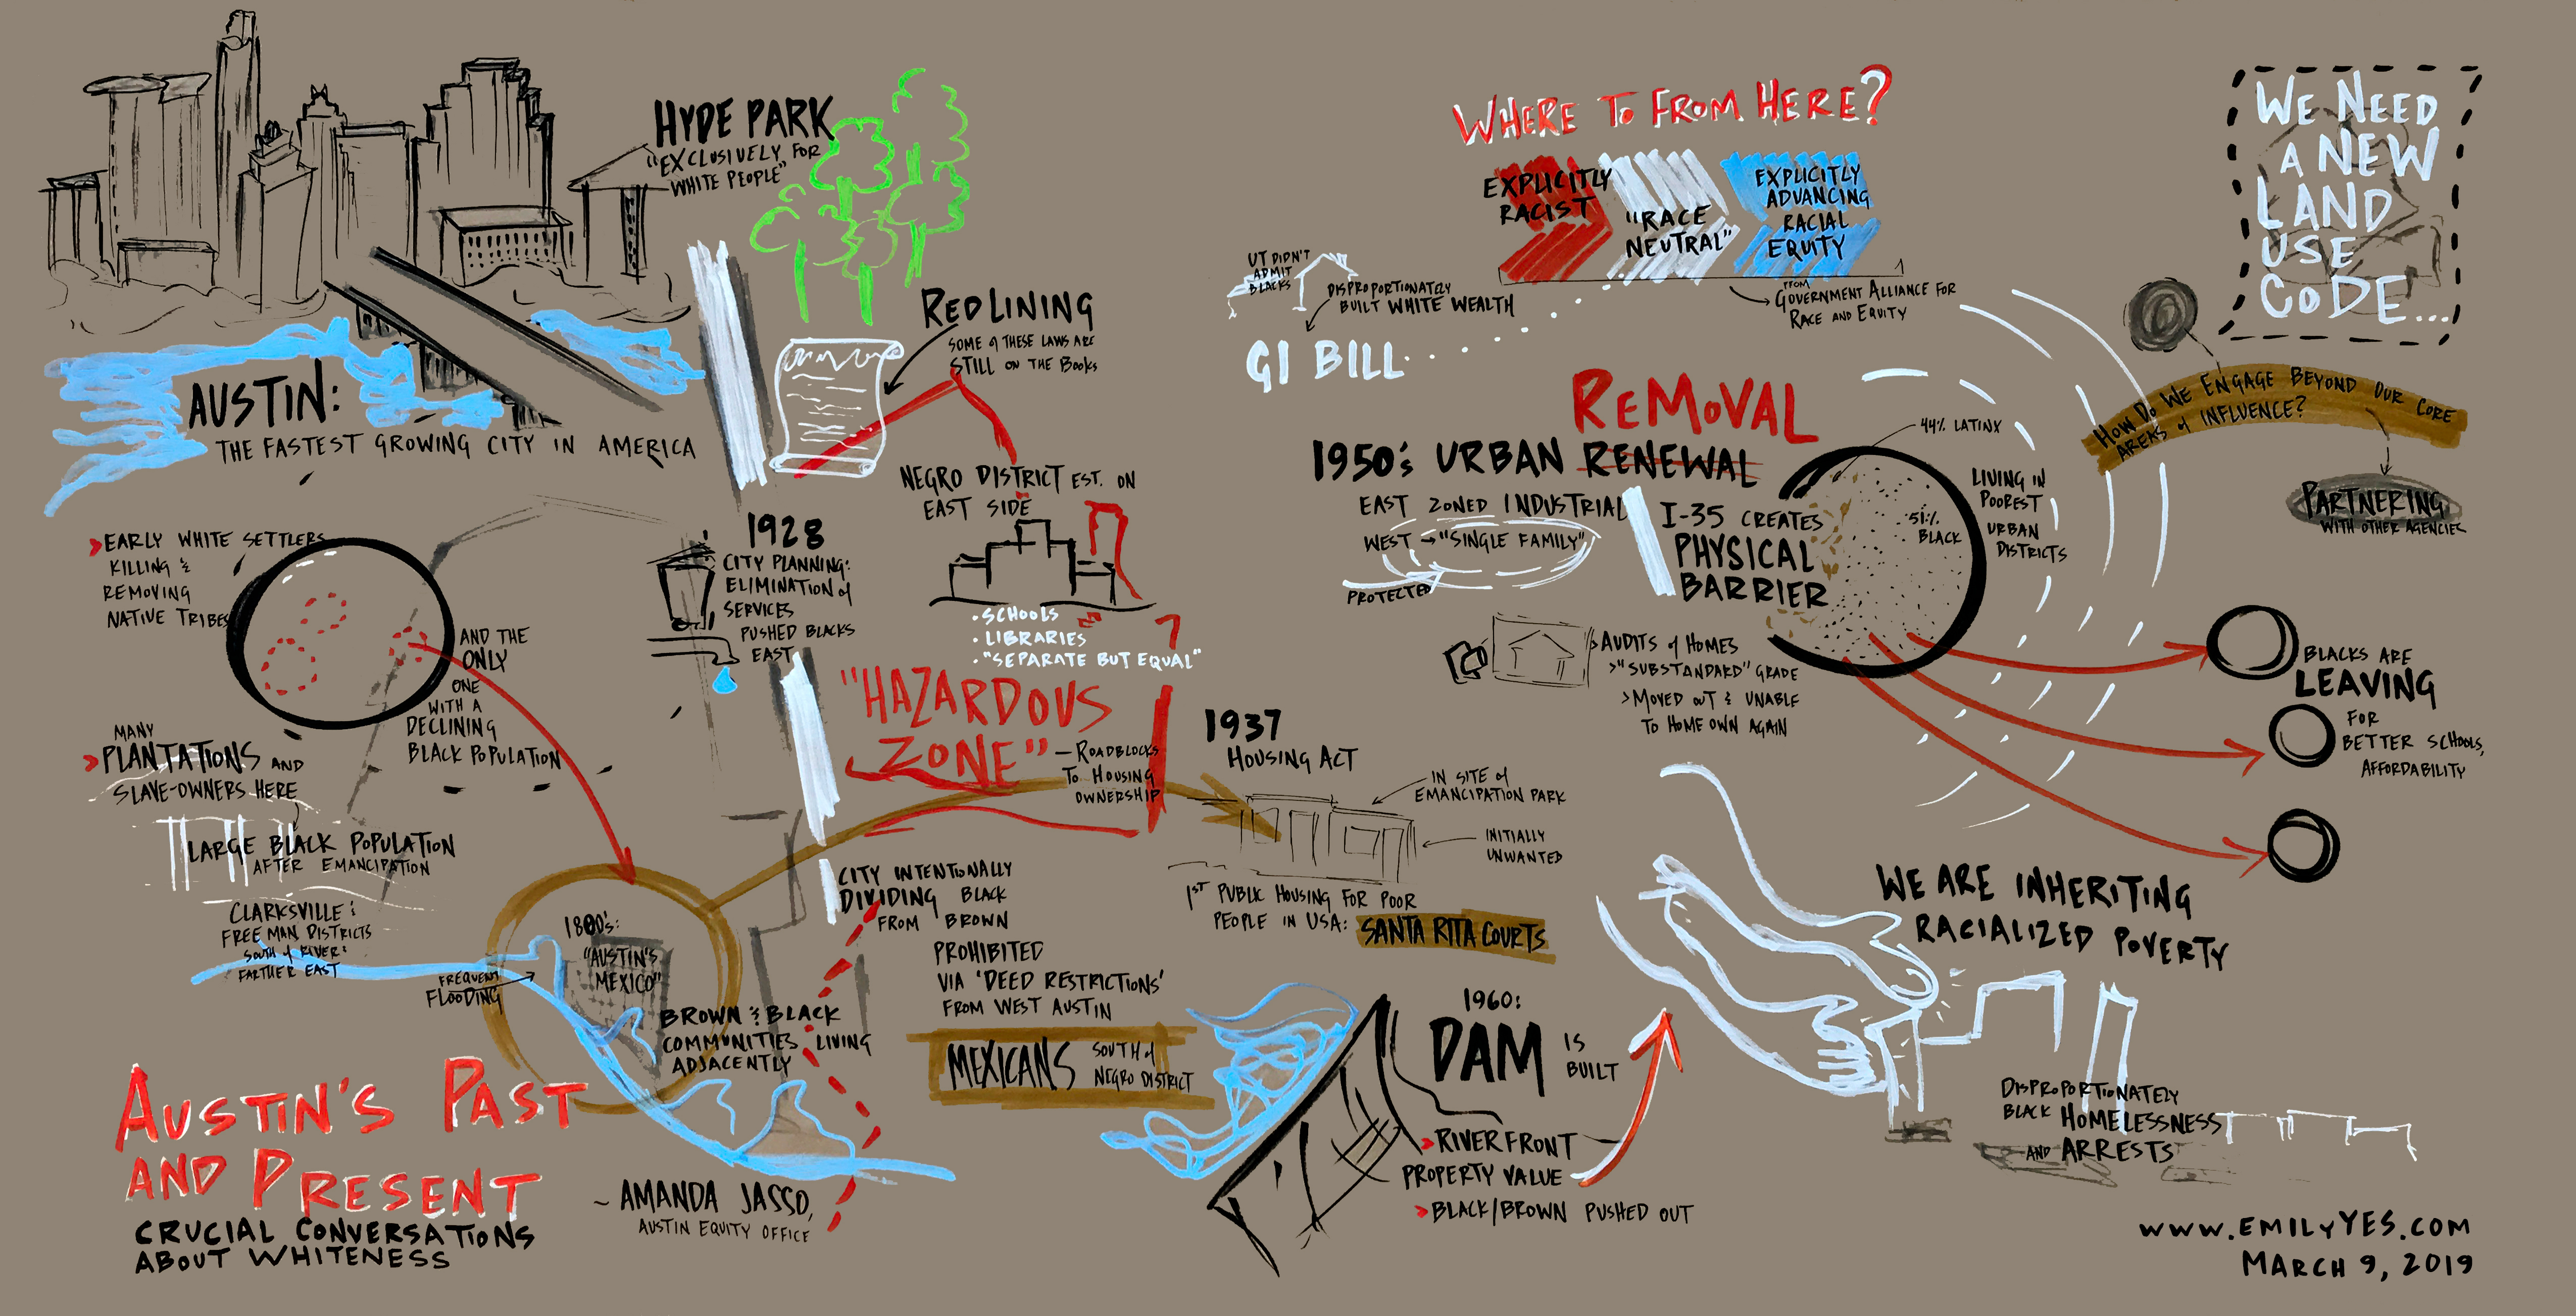 HYDE PARK
"EXCLUSIVELY FOR
WHITE PEOPLE"
AUSTIN:
THE FASTEST GROWING CITY IN AMERICA
EARLY WHITE SETTLERS
KILLING &
REMOVING
NATIVE TRIBES
AND THE
ONLY
ONE
WITH A
DECLINING
BLACK POPULATION
MANY
PLANTATIONS AND
SLAVE-OWNERS HERE
LARGE BLACK POPULATION
AFTER EMANCIPATION
CLARKSVILLE &
FREE MAN DISTRICTS
SOUTH of RIVER &
FARTHER EAST
FREQUENT
FLOODING
1800's:
"AUSTIN'S
MEXICO"
BROWN & BLACK
COMMUNITIES LIVING
ADJACENTLY
AUSTIN'S PAST
AND PRESENT
CRUCIAL CONVERSATIONS
ABOUT WHITENESS
~ AMANDA JASSO,
AUSTIN EQUITY OFFICE
REDLINING
SOME of THESE LAWS ARE
STILL ON THE BOOKS
NEGRO DISTRICT EST. ON
EAST SIDE
• SCHOOLS
• LIBRARIES
• "SEPARATE BUT EQUAL"
1928
CITY PLANNING:
ELIMINATION of
SERVICES
PUSHED BLACKS
EAST
"HAZARDOUS
ZONE"
— ROADBLOCKS
TO HOUSING
OWNERSHIP
CITY INTENTIONALLY
DIVIDING BLACK
FROM BROWN
PROHIBITED
VIA 'DEED RESTRICTIONS'
FROM WEST AUSTIN
MEXICANS SOUTH of
NEGRO DISTRICT
1937
HOUSING ACT
IN SITE of
EMANCIPATION PARK
INITIALLY
UNWANTED
1ST PUBLIC HOUSING FOR POOR
PEOPLE IN USA: SANTA RITA COURTS
1960:
DAM IS
BUILT
RIVERFRONT
PROPERTY VALUE
BLACK/BROWN PUSHED OUT
WHERE TO FROM HERE?
EXPLICITLY
RACIST
"RACE
NEUTRAL"
EXPLICITLY
ADVANCING
RACIAL
EQUITY
FROM
GOVERNMENT ALLIANCE FOR
RACE AND EQUITY
UT DIDN'T
ADMIT
BLACKS
DISPROPORTIONATELY
BUILT WHITE WEALTH
GI BILL
REMOVAL
1950's URBAN RENEWAL
EAST ZONED INDUSTRIAL
WEST → "SINGLE FAMILY"
PROTECTED
I-35 CREATES
PHYSICAL
BARRIER
AUDITS of HOMES
> "SUBSTANDARD" GRADE
> MOVED OUT & UNABLE
TO HOME OWN AGAIN
44% LATINX
51%
BLACK
LIVING IN
POOREST
URBAN
DISTRICTS
BLACKS ARE
LEAVING
FOR
BETTER SCHOOLS,
AFFORDABILITY
WE NEED
A NEW
LAND
USE
CODE...
HOW DO WE ENGAGE BEYOND OUR CORE
AREAS of INFLUENCE?
PARTNERING
WITH OTHER AGENCIES
WE ARE INHERITING
RACIALIZED POVERTY
DISPROPORTIONATELY
BLACK HOMELESSNESS
AND ARRESTS
WWW.EMILYYES.COM
MARCH 9, 2019